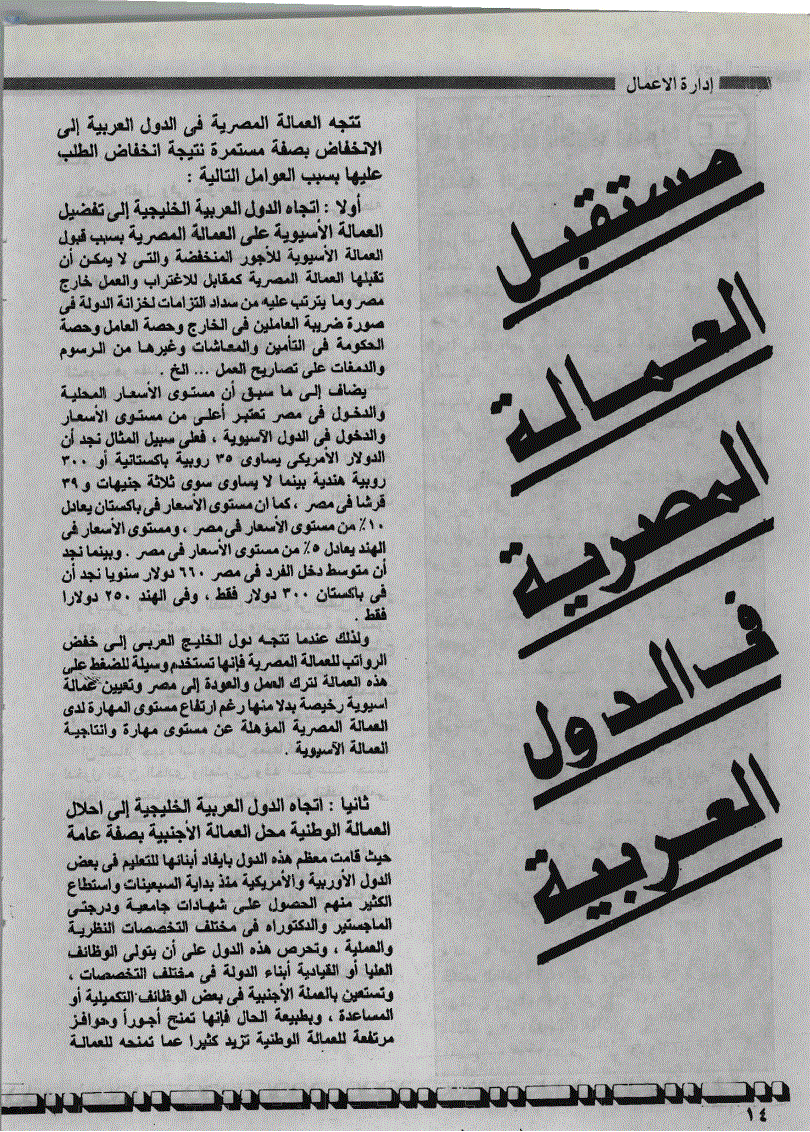 إدارة الاعمال
مستقبل
العمالة
المصرية
فى الدول
العربية
تتجه العمالة المصرية فى الدول العربية إلى
الانخفاض بصفة مستمرة نتيجة انخفاض الطلب
عليها بسبب العوامل التالية :
أولا : اتجاه الدول العربية الخليجية إلى تفضيل
العمالة الأسيوية على العمالة المصرية بسبب قبول
العمالة الأسيوية للأجور المنخفضة والتى لا يمكن أن
تقبلها العمالة المصرية كمقابل للاغتراب والعمل خارج
مصر وما يترتب عليه من سداد التزامات لخزانة الدولة فى
صورة ضريبة العاملين فى الخارج وحصة العامل وحصة
الحكومة فى التأمين والمعاشات وغيرها من الرسوم
والدمغات على تصاريح العمل ... الخ .
يضاف إلى ما سبق أن مستوى الأسعار المحلية
والدخول فى مصر تعتبر أعلى من مستوى الأسعار
والدخول فى الدول الآسيوية ، فعلى سبيل المثال نجد أن
الدولار الأمريكى يساوى ٣٥ روبية باكستانية أو ٣٠٠
روبية هندية بينما لا يساوى سوى ثلاثة جنيهات و ٣٩
قرشا فى مصر ، كما ان مستوى الأسعار فى باكستان يعادل
١٠٪ من مستوى الأسعار فى مصر ، ومستوى الأسعار فى
الهند يعادل ٥٪ من مستوى الأسعار فى مصر . وبينما نجد
أن متوسط دخل الفرد فى مصر ٦٦٠ دولار سنويا نجد أن
فى باكستان ٣٠٠ دولار فقط ، وفى الهند ٢٥٠ دولارا
فقط .
ولذلك عندما تتجه دول الخليج العربى إلى خفض
الرواتب للعمالة المصرية فإنها تستخدم وسيلة للضغط على
هذه العمالة لترك العمل والعودة إلى مصر وتعيين عمالة
اسيوية رخيصة بدلا منها رغم ارتفاع مستوى المهارة لدى
العمالة المصرية المؤهلة عن مستوى مهارة وانتاجية
العمالة الآسيوية .
ثانيا : اتجاه الدول العربية الخليجية إلى احلال
العمالة الوطنية محل العمالة الأجنبية بصفة عامة
حيث قامت معظم هذه الدول بايفاد أبنائها للتعليم فى بعض
الدول الأوربية والأمريكية منذ بداية السبعينات واستطاع
الكثير منهم الحصول على شهادات جامعية ودرجتى
الماجستير والدكتوراه فى مختلف التخصصات النظرية
والعملية ، وتحرص هذه الدول على أن يتولى الوظائف
العليا أو القيادية أبناء الدولة فى مختلف التخصصات ،
وتستعين بالعملة الأجنبية فى بعض الوظائف التكميلية أو
المساعدة ، وبطبيعة الحال فإنها تمنح أجوراً وحوافز
مرتفعة للعمالة الوطنية تزيد كثيرا عما تمنحه للعمالة
١٤